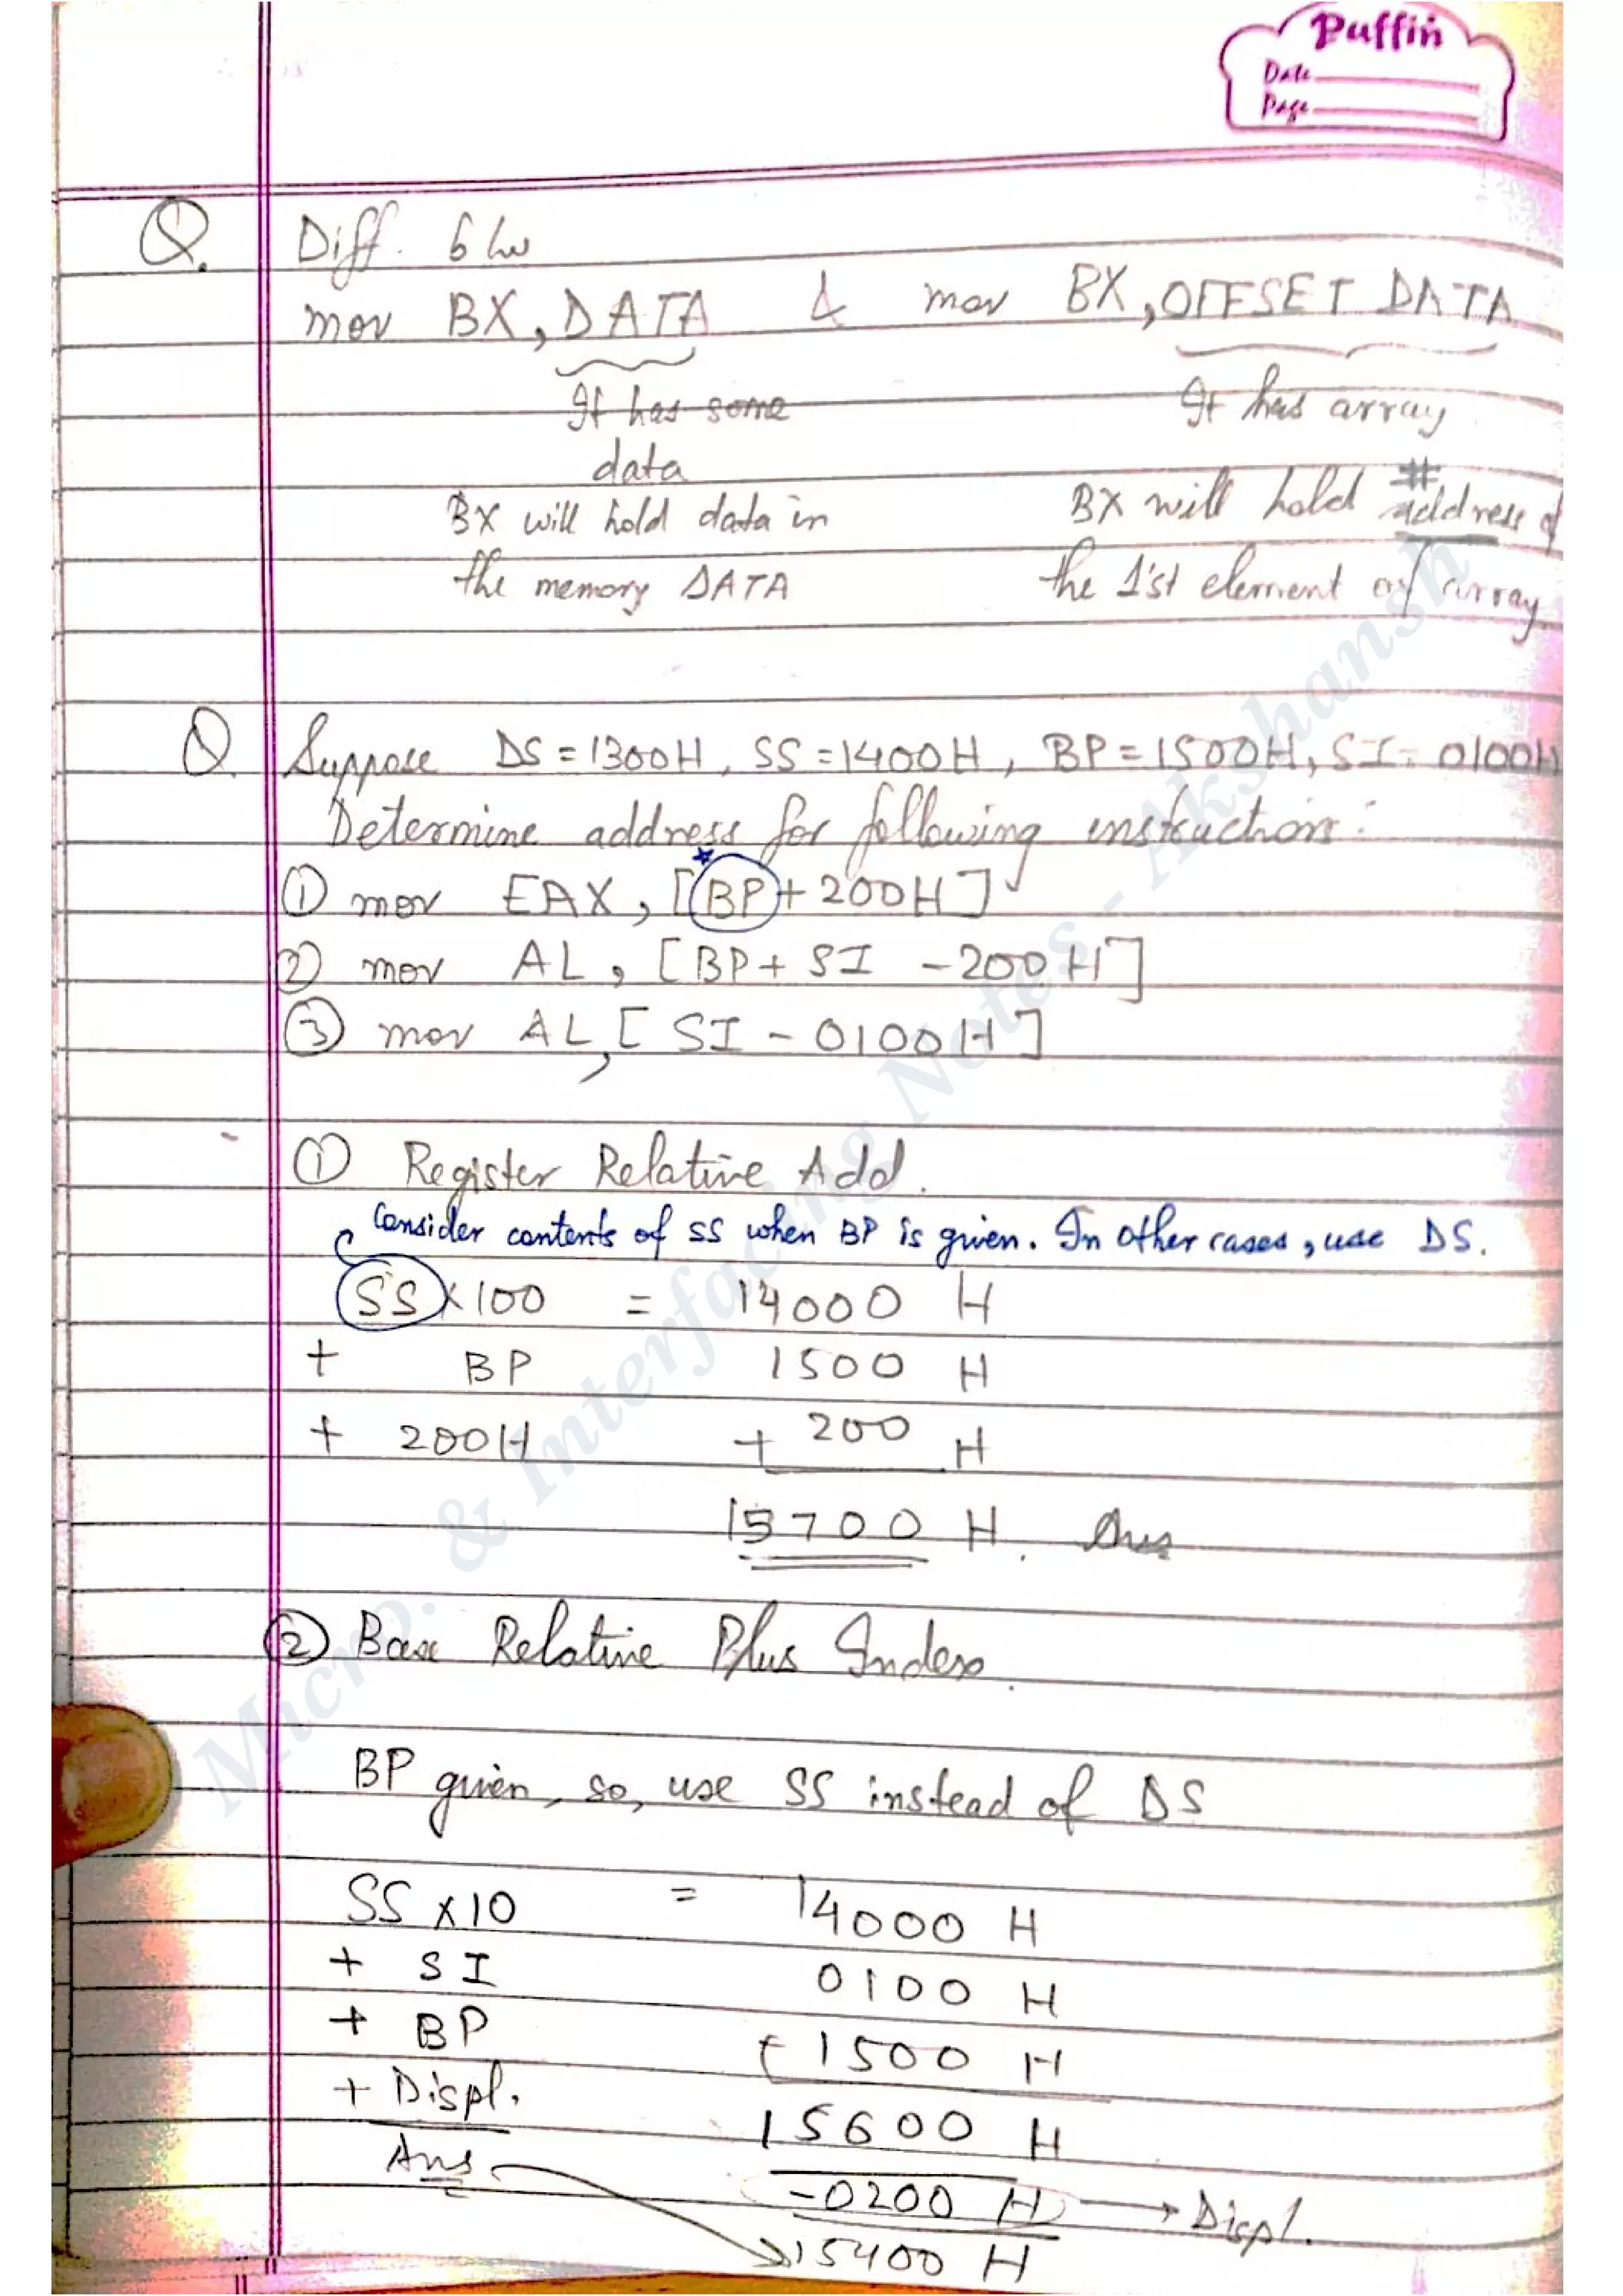 Puffin
Date
Page
Q. Diff. b/w
mov BX, DATA & mov BX, OFFSET DATA
It has some It has array
data
BX will hold data in BX will hold address of
the memory DATA the 1'st element of array
Q. Suppose DS = 1300H, SS = 1400H, BP = 1500H, SI = 0100H
Determine address for following instruction:
① mov EAX, [BP + 200H]
② mov AL, [BP + SI - 200H]
③ mov AL, [SI - 0100H]
① Register Relative Add.
Consider contents of SS when BP is given. In other cases, use DS.
SS x 100 = 14000 H
+ BP 1500 H
+ 200H + 200 H
15700 H. Ans
② Base Relative Plus Index.
BP given, so, use SS instead of DS
SS x 10 = 14000 H
+ SI 0100 H
+ BP + 1500 H
+ Displ. 15600 H
Ans - 0200 H → Displ.
15400 H
Micro. & Interfacing Notes - Akshansh